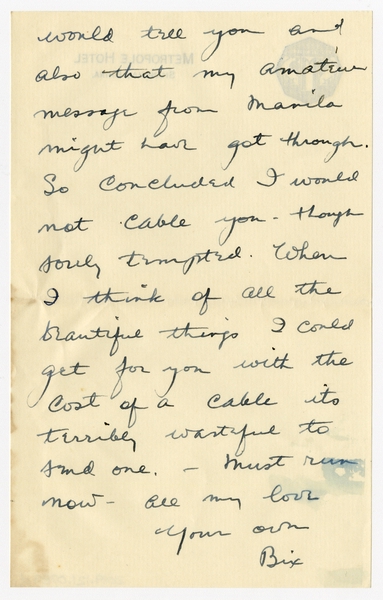 would tell you and
also that my amateur
message from Manila
might have got through.
So concluded I would
not cable you - though
sorely tempted. When
I think of all the
beautiful things I could
get for you with the
cost of a cable its
terribly wasteful to
send one. - Must run
now - all my love
Your own
Bix